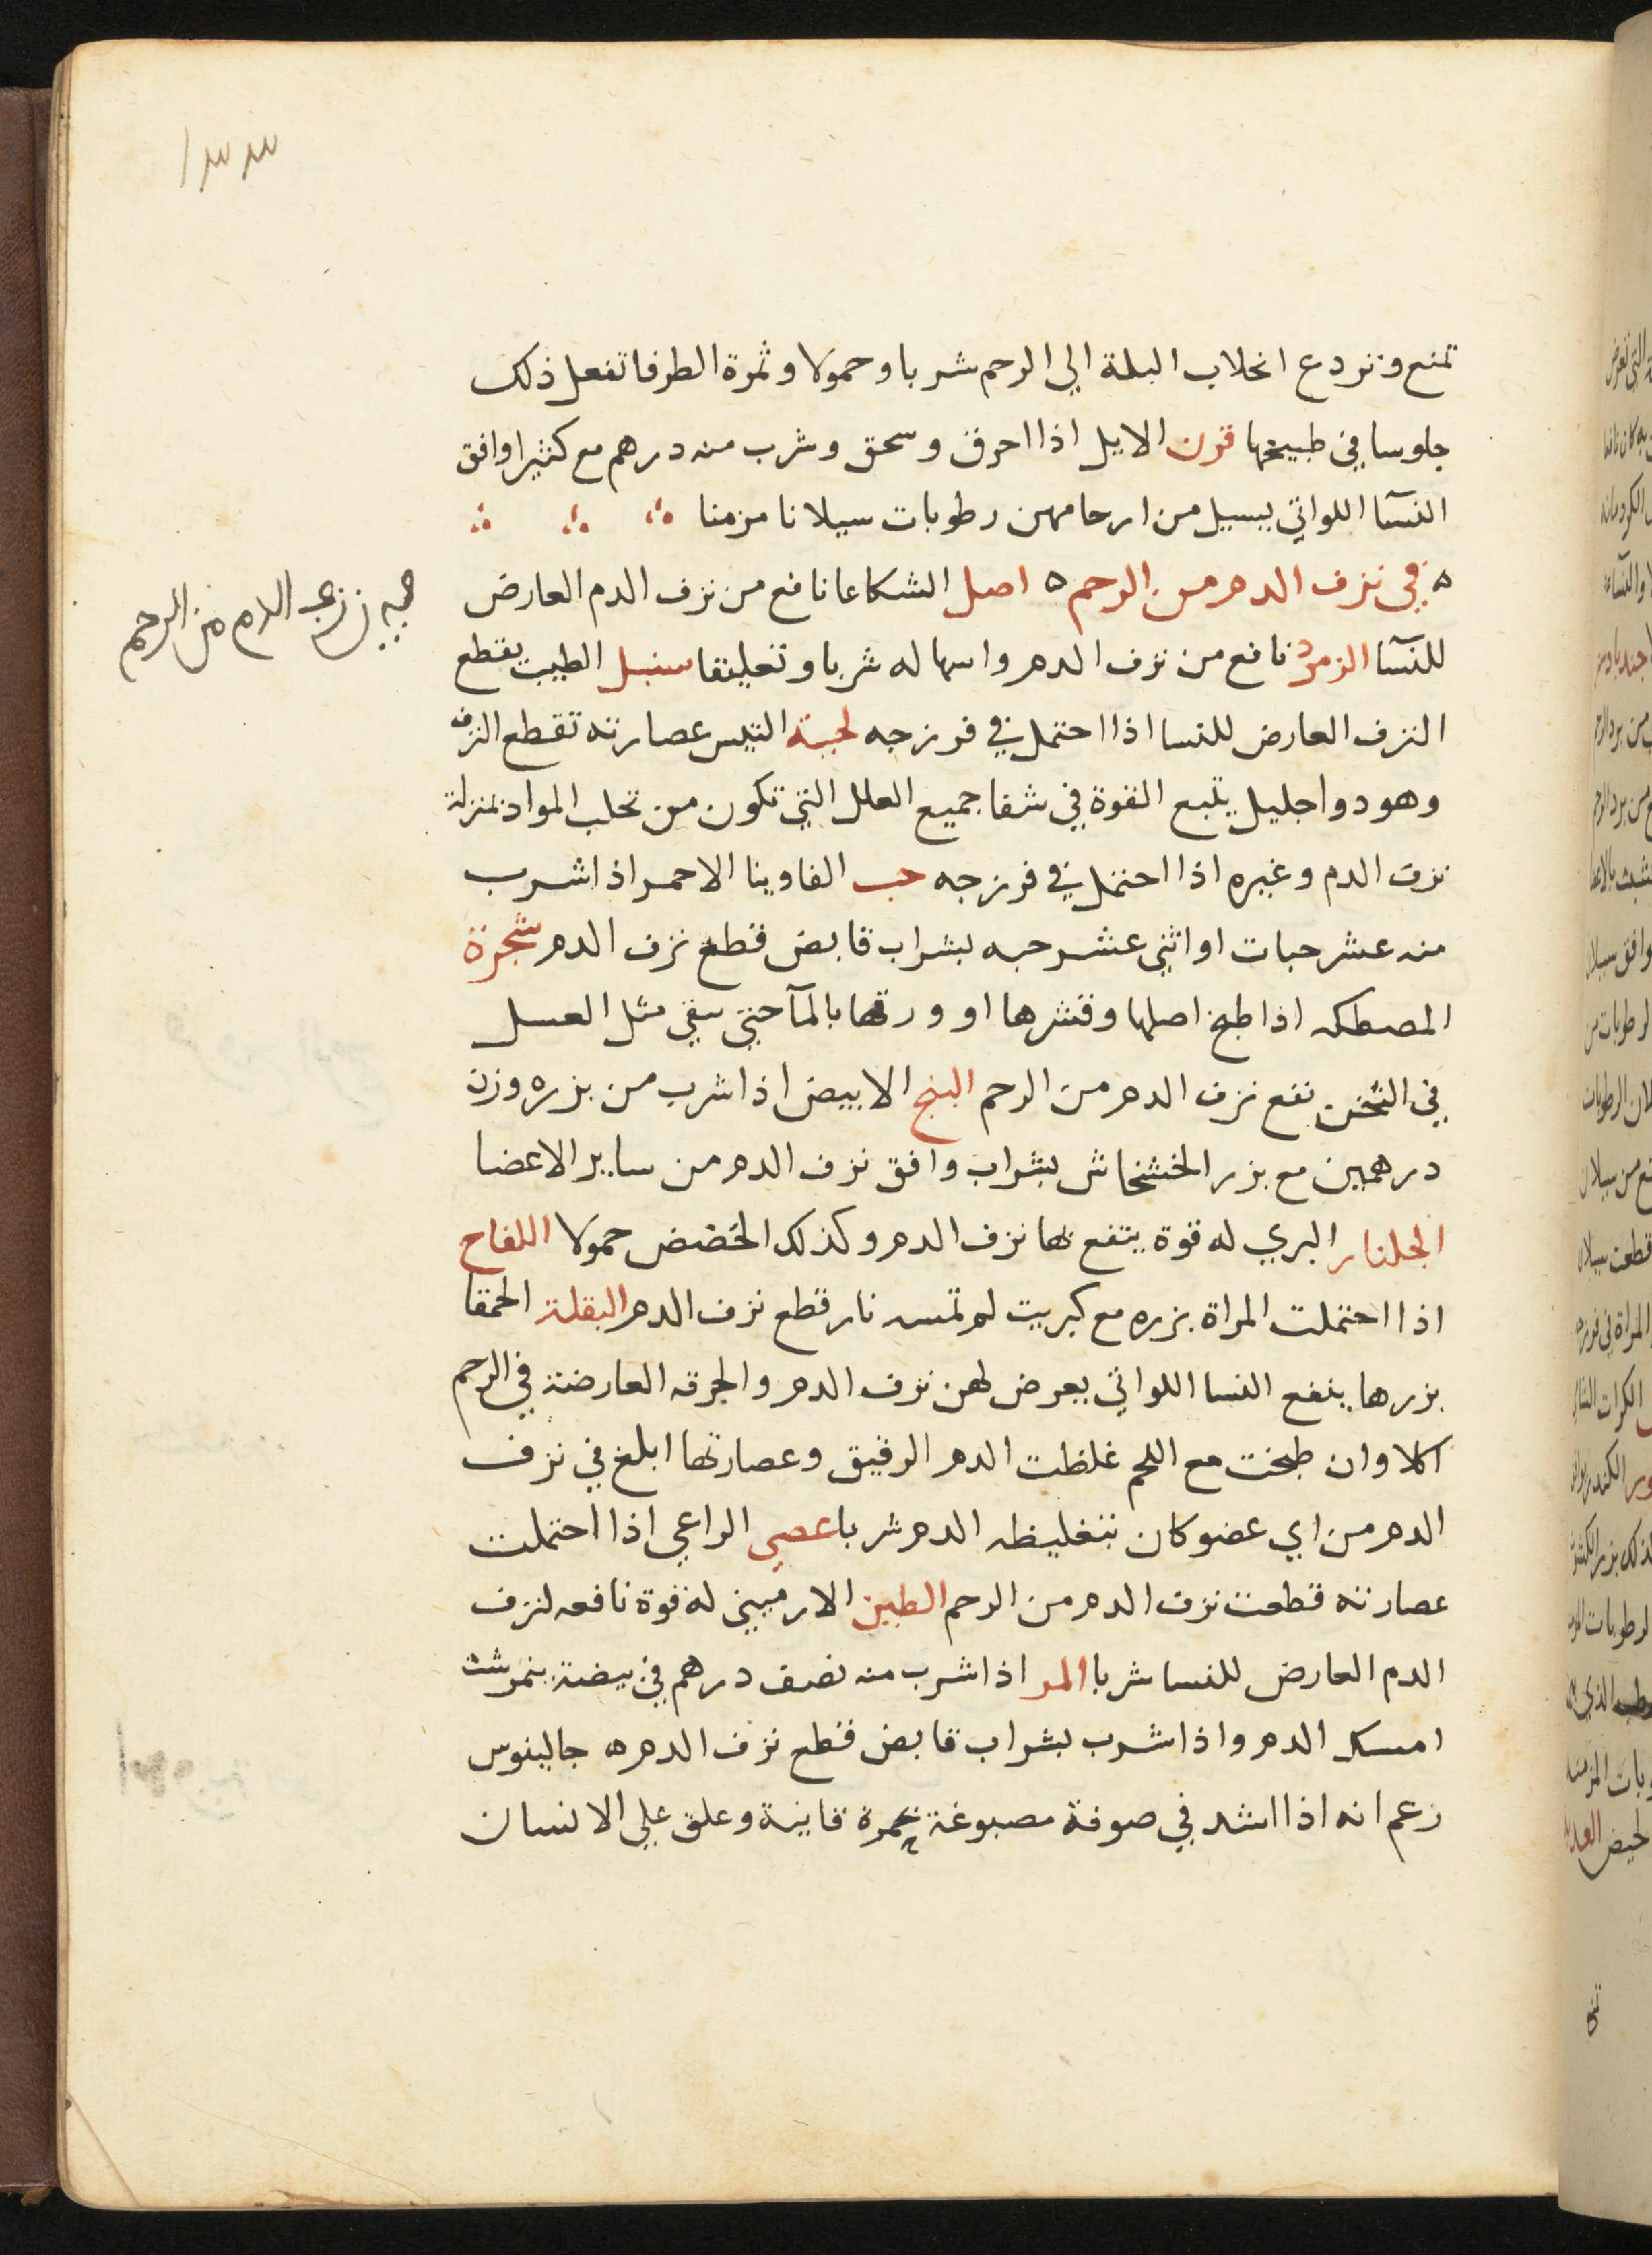 ١٣٣
تمنع وتردع انحلاب البلة الي الرحم شربا وحمولا وثمرة الطرفا تفعل ذلك
جلوسا في طبيخها قرن الايل اذا احرق وسحق وشرب منه درهم مع كثيرا وافق
النسآ اللواتي يسيل من ارحامهن رطوبات سيلانا مزمنا
في نزف الدم من الرحم اصل الشكاعا نافع من نزف الدم العارض
في نزف الدم من الرحم
للنسآ الزمرد نافع من نزف الدم واسهاله شربا وتعليقا سنبل الطيب يقطع
النزف العارض للنسا اذا احتمل في فرزجه لحية التيس عصارته تقطع النزف
وهو دوا جليل يتبع القوة في شفا جميع العلل التي تكون من تحلب المواد بمنزلة
نزف الدم وغيره اذا احتمل في فرزجه حب الفاوينا الاحمر اذا شرب
منه عشر حبات او اثني عشر حبه بشراب قابض قطع نزف الدم شجرة
المصطكه اذا طبخ اصلها وقشرها او ورقها بالمآ حتي يبقي مثل العسل
في الثخن نفع نزف الدم من الرحم البنج الابيض اذا شرب من بزره وزن
درهمين مع بزر الخشخاش بشراب وافق نزف الدم من ساير الاعضا
الجلنار البري له قوة ينتفع بها نزف الدم وكذلك الحضض حمولا اللفاح
اذا احتملت المراة بزره مع كبريت لم تمسه نار قطع نزف الدم البقلة الحمقا
بزرها ينفع النسا اللواتي يعرض لهن نزف الدم والحرقه العارضة في الرحم
اكلا وان طبخت مع اللحم غلظت الدم الرقيق وعصارتها ابلغ في نزف
الدم من اي عضو كان بتغليظه الدم شربا عصي الراعي اذا احتملت
عصارته قطعت نزف الدم من الرحم الطين الارميني له قوة نافعه لنزف
الدم العارض للنسا شربا المر اذا شرب منه نصف درهم في بيضة نيمرشت
امسك الدم واذا شرب بشراب قابض قطع نزف الدم جالينوس
زعم انه اذا شد في صوفة مصبوغة بحمرة قانية وعلق علي الانسان